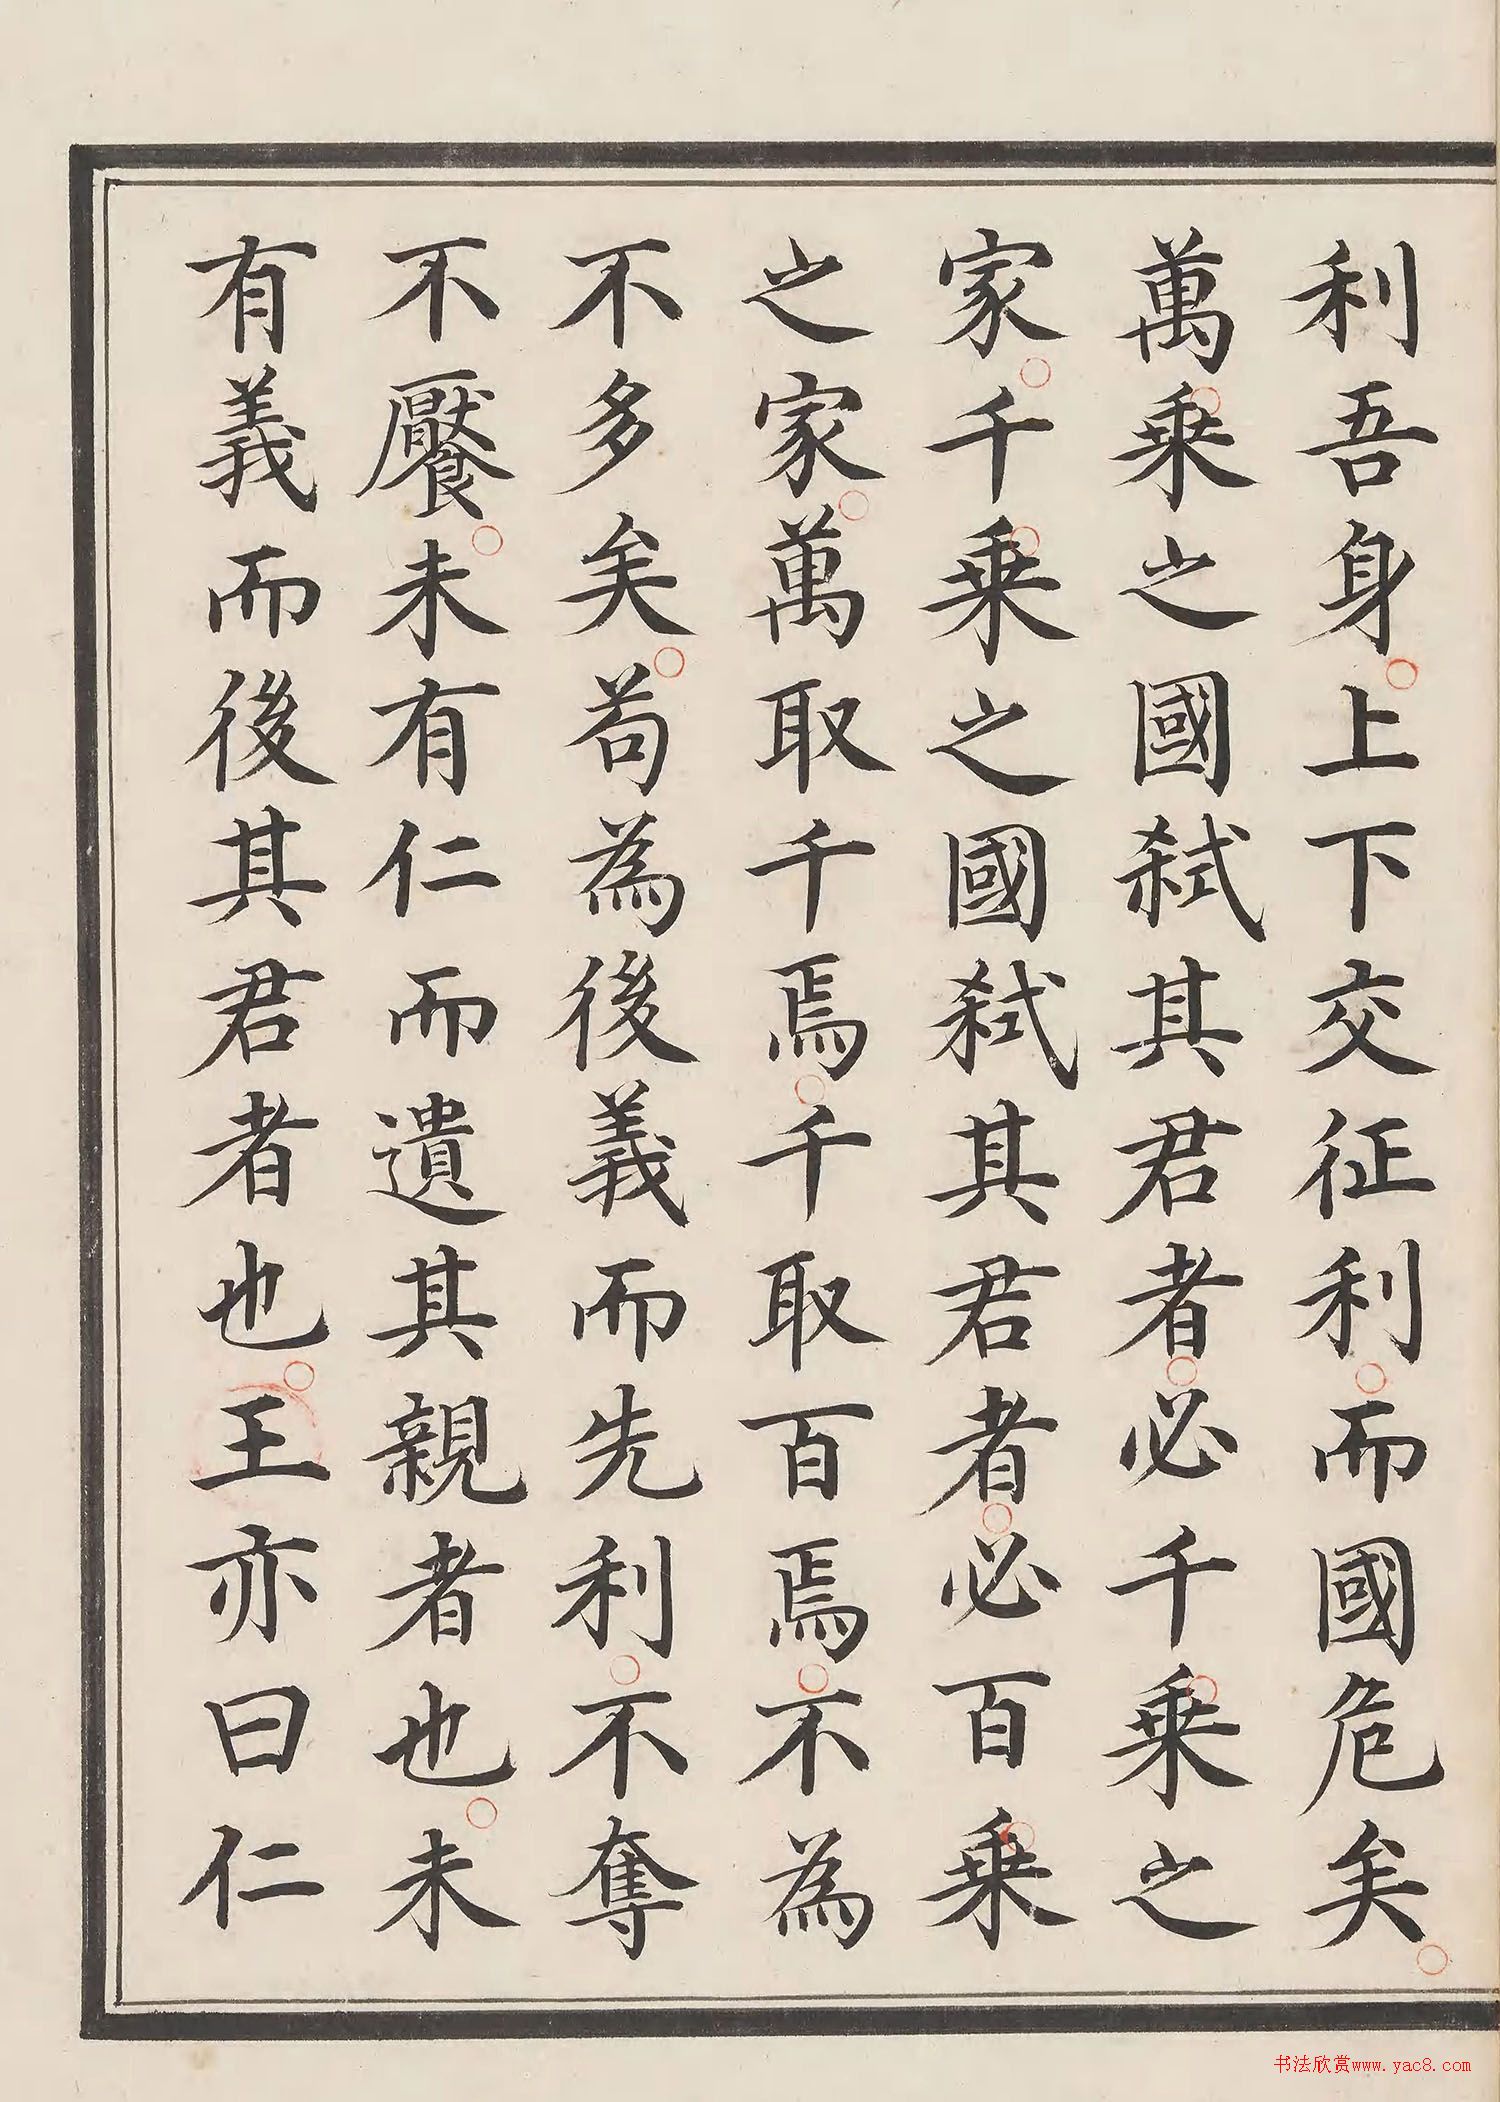 利吾身上下交征利而國危矣
萬乗之國弑其君者必千乗之
家千乗之國弑其君者必百乗
之家萬取千焉千取百焉不為
不多矣苟為後義而先利不奪
不饜未有仁而遺其親者也未
有義而後其君者也王亦曰仁
书法欣赏www.yac8.com